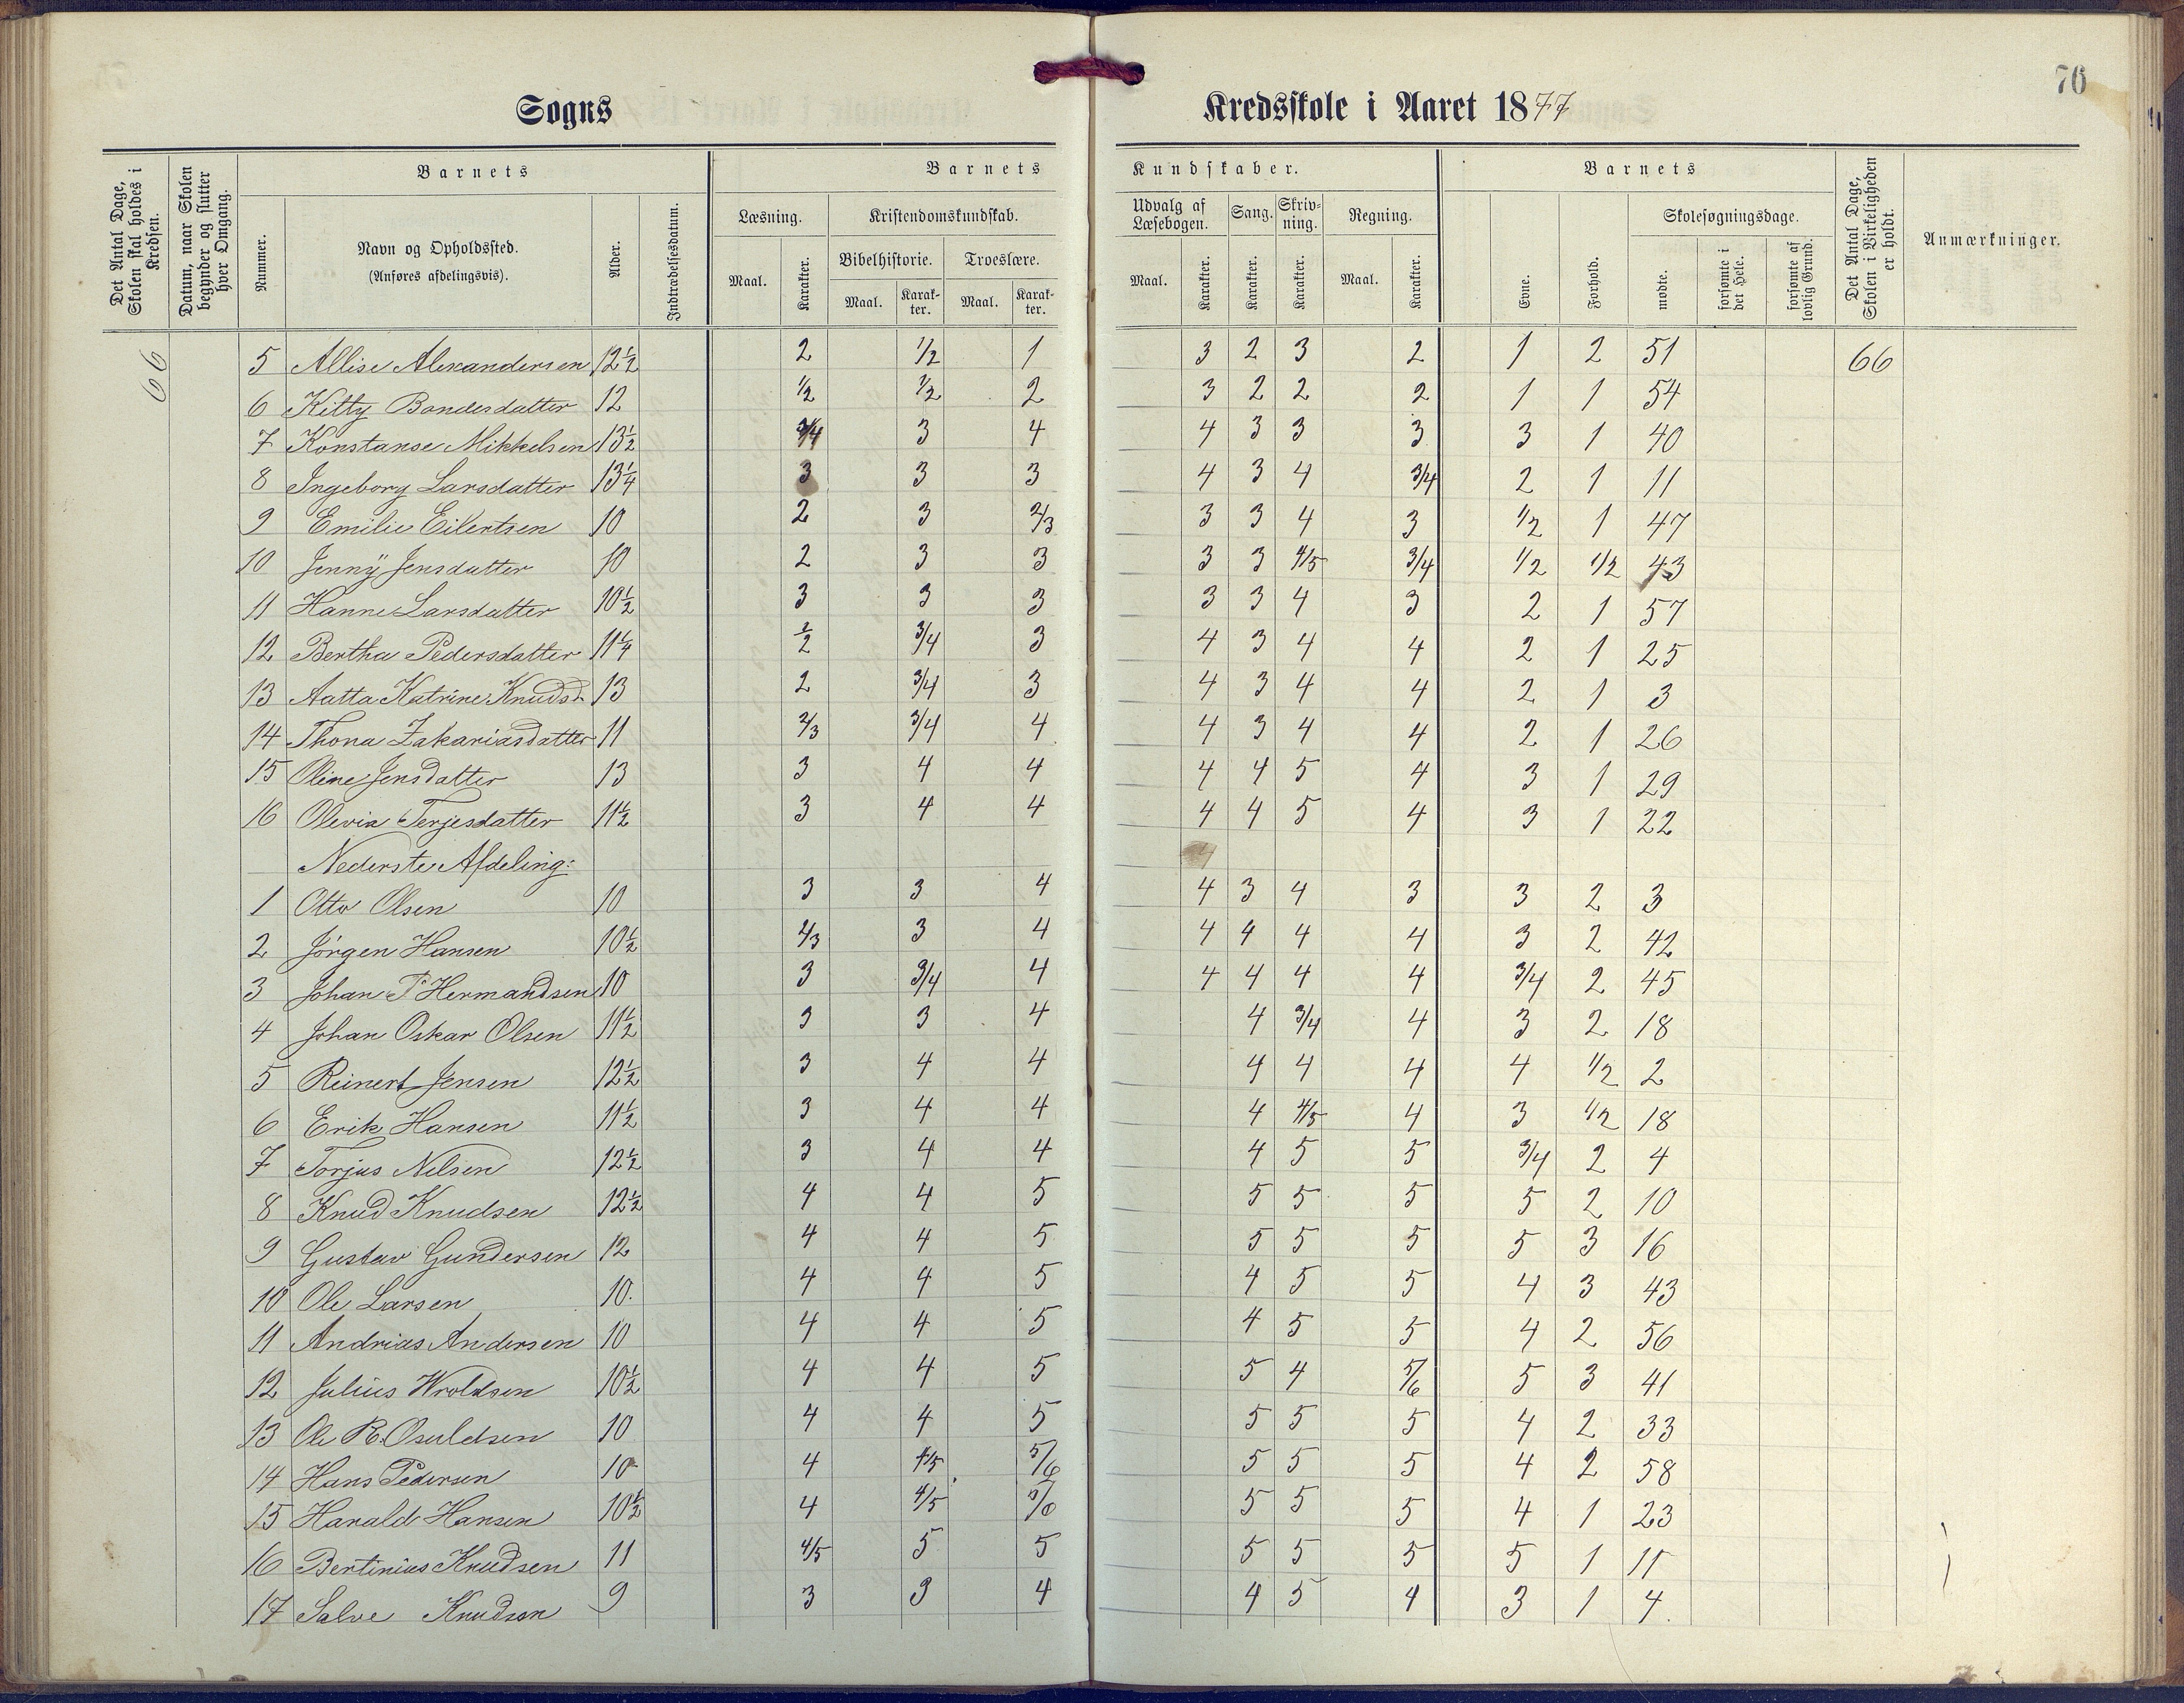 76
Sogns Kredsskole i Aaret 1877
Det Antal Dage, Skolen skal holdes i Kredsen.
Datum, naar Skolen begynder og slutter hver Omgang.
Barnets
Nummer.
Navn og Opholdssted.
(Anføres afdelingsvis).
Alder.
Indtrædelsesdatum.
Barnets Kundskaber.
Læsning.
Maal. Karakter.
Kristendomskundskab.
Bibelhistorie. Troeslære.
Maal. Karak-ter. Maal. Karak-ter.
Udvalg af Læsebogen.
Maal. Karakter.
Sang.
Karakter.
Skriv-ning.
Karakter.
Regning.
Maal. Karakter.
Barnets
Evne. Forhold.
Skolesøgningsdage.
mødte. forsømte i det Hele. forsømte af lovlig Grund.
Det Antal Dage, Skolen i Virkeligheden er holdt.
Anmærkninger.
66 5 Allise Alexandersen 12½ 2 1/2 1 3 2 3 2 1 2 51 66
6 Kitty Bondesdatter 12 1/2 1/2 2 3 2 2 2 1 1 54
7 Konstanse Mikkelsen 13½ 3/4 3 4 4 3 3 3 3 1 40
8 Ingeborg Larsdatter 13¼ 3 3 3 4 3 4 3/4 2 1 11
9 Emilie Eilertsen 10 2 3 2/3 3 3 4 3 1/2 1 47
10 Jenny Jensdatter 10 2 3 3 3 3 4/5 3/4 1/2 1/2 43
11 Hanne Larsdatter 10½ 3 3 3 3 3 4 3 2 1 57
12 Bertha Pedersdatter 11¼ 2 3/4 3 4 3 4 4 2 1 25
13 Aatta Katrine Knudsd. 13 2 3/4 3 4 3 4 4 2 1 3
14 Thona Zakariasdatter 11 2/3 3/4 4 4 3 4 4 2 1 26
15 Oline Jensdatter 13 3 4 4 4 4 5 4 3 1 29
16 Olevia Terjesdatter 11½ 3 4 4 4 4 5 4 3 1 22
Nederste Afdeling:
1 Otto Olsen 10 3 3 4 4 3 4 3 3 2 3
2 Jörgen Hansen 10½ 2/3 3 4 4 4 4 4 3 2 42
3 Johan P Hermandsen 10 3 3/4 4 4 4 4 4 3/4 2 45
4 Johan Oskar Olsen 11½ 3 3 4 4 3/4 4 3 2 18
5 Reinert Jensen 12½ 3 4 4 4 4 4 4 1/2 2
6 Erik Hansen 11½ 3 4 4 4 4/5 4 3 1/2 18
7 Torjus Nilsen 12½ 3 4 4 4 5 5 3/4 2 4
8 Knud Knudsen 12½ 4 4 5 5 5 5 5 2 10
9 Gustav Gundersen 12 4 4 5 5 5 5 5 3 16
10 Ole Larsen 10. 4 4 5 4 5 5 4 3 43
11 Andrias Andersen 10 4 4 5 4 5 5 4 2 56
12 Julius Wroldsen 10½ 4 4 5 5 4 5/6 5 3 41
13 Ole R. Osuldsen 10 4 4 5 5 5 5 4 2 33
14 Hans Pedersen 10 4 4/5 5/6 5 5 5 4 2 58
15 Harald Hansen 10½ 4 4/5 5/6 5 5 5 4 1 23
16 Bertinius Knudsen 11 4/5 5 5 5 5 5 5 1 11
17 Salve Knudsen 9 3 3 4 4 5 4 3 1 4.